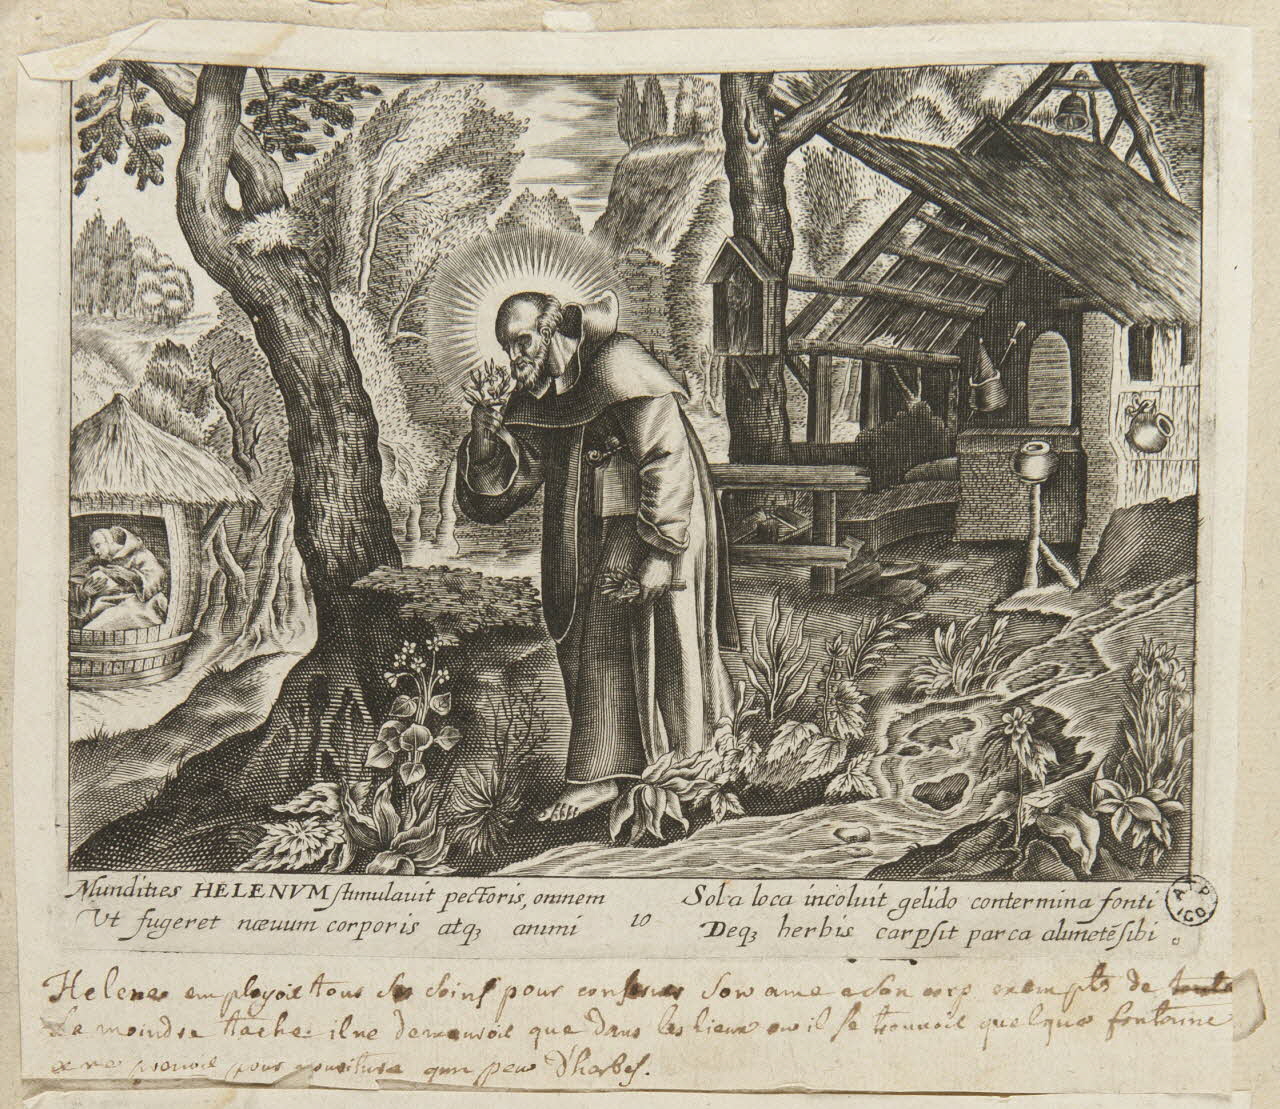 Mundities HELENVM stimulauit pectoris, omnem
Vt fugeret næuum corporis atqȝ animi
10
Sola loca incoluit gelido contermina fonti
Deqȝ herbis carpsit parca alimētē sibi
Helene employoit tous ses soins pour conserver son ame et son corp exempts de toute
La moindre tache: il ne demeuroit que dans les lieux ou il se trouvoit quelque fontaine
et ne prenoit pour nouriture qun peu D'harbes.